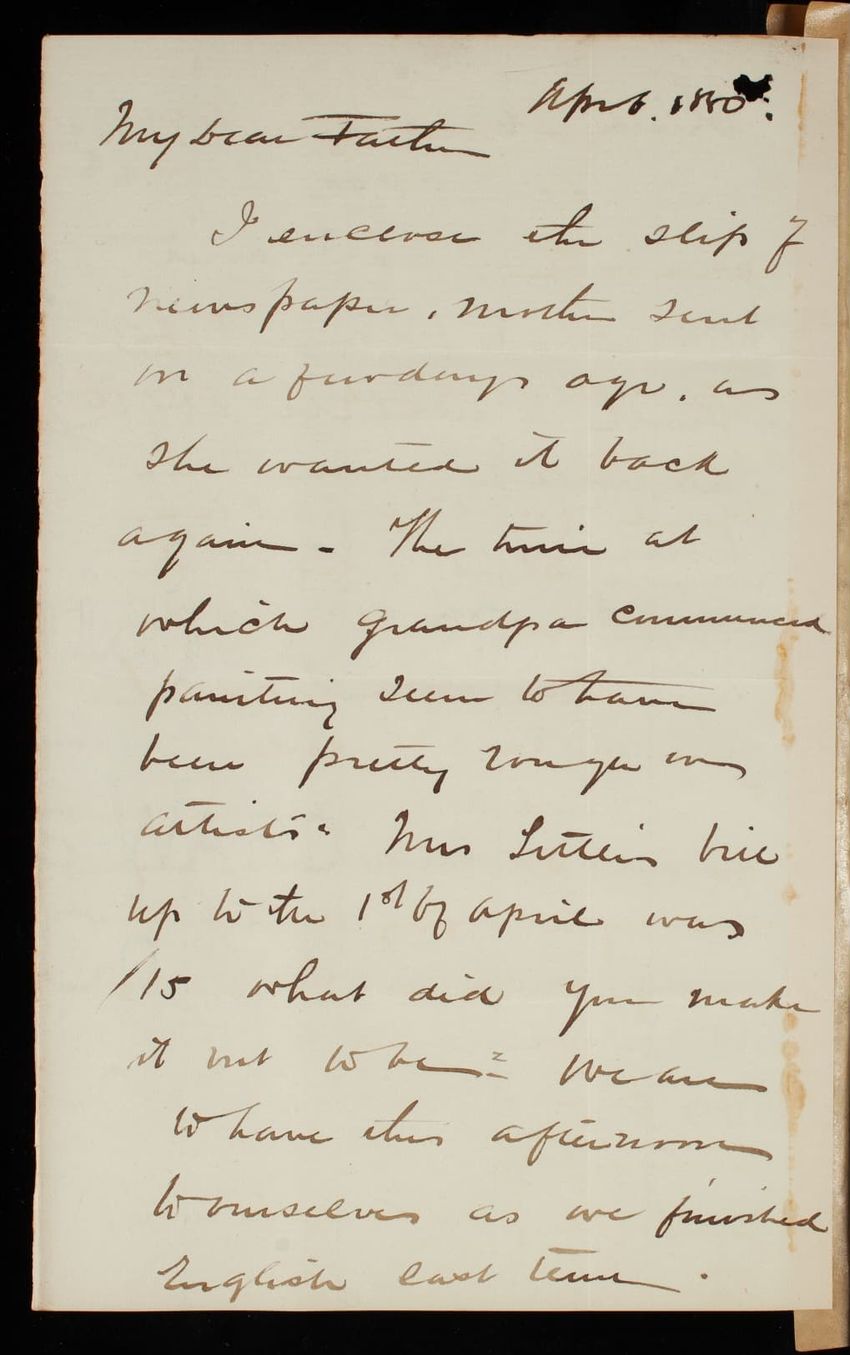 Apr 6. 1880.
My dear Father
I enclose the slip of
newspaper, mother sent
on a few days ago, as
she wanted it back
again - The time at
which Grandpa commenced
painting seem to have
been pretty rough on
artists. Mrs bill
up to the 1st of April was
15 what did you make
it out to be? We are
to have this afternoon
to ourselves as we finished
English last term.